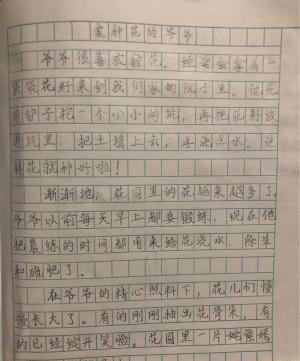 爱种花的爷爷
爷爷很喜欢种花。经常会拿着一
袋袋花籽来到我们家的院子里。他先
用铲子挖一个小小的坑，再把花籽放
进坑里，把土填上去，再浇点水。这
样花就种好啦！
渐渐地，花园里的花越来越多了。
爷爷以前每天早上都要锻练，现在他
把晨练的时间都用来给花浇水、除草
和施肥了。
在爷爷的精心照料下，花儿们慢
慢长大了。有的刚刚抽出花骨朵，有
的已经绽开笑脸。花园里一片姹紫嫣